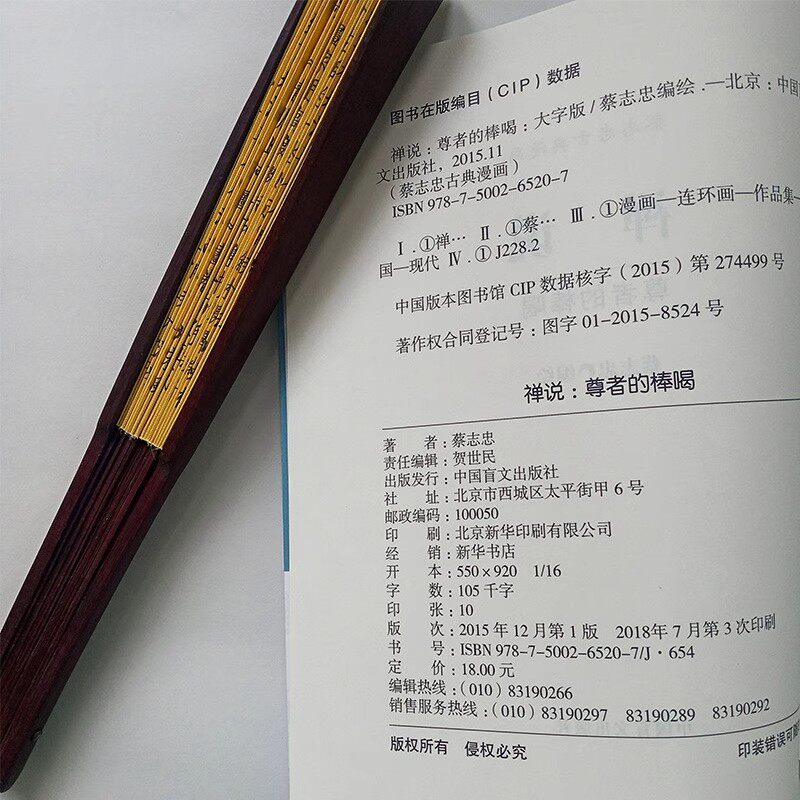 图书在版编目（CIP）数据
禅说：尊者的棒喝：大字版/蔡志忠编绘.—北京：中国
文出版社，2015.11
（蔡志忠古典漫画）
ISBN 978-7-5002-6520-7
Ⅰ.①禅… Ⅱ.①蔡… Ⅲ.①漫画—连环画—作品集—
国—现代 Ⅳ.①J228.2
中国版本图书馆CIP数据核字（2015）第274499号
著作权合同登记号：图字01-2015-8524号
禅说：尊者的棒喝
著 者：蔡志忠
责任编辑：贺世民
出版发行：中国盲文出版社
社 址：北京市西城区太平街甲6号
邮政编码：100050
印 刷：北京新华印刷有限公司
经 销：新华书店
开 本：550×920 1/16
字 数：105千字
印 张：10
版 次：2015年12月第1版 2018年7月第3次印刷
书 号：ISBN 978-7-5002-6520-7/J·654
定 价：18.00元
编辑热线：(010) 83190266
销售服务热线：(010) 83190297 83190289 83190292
版权所有 侵权必究
印装错误可